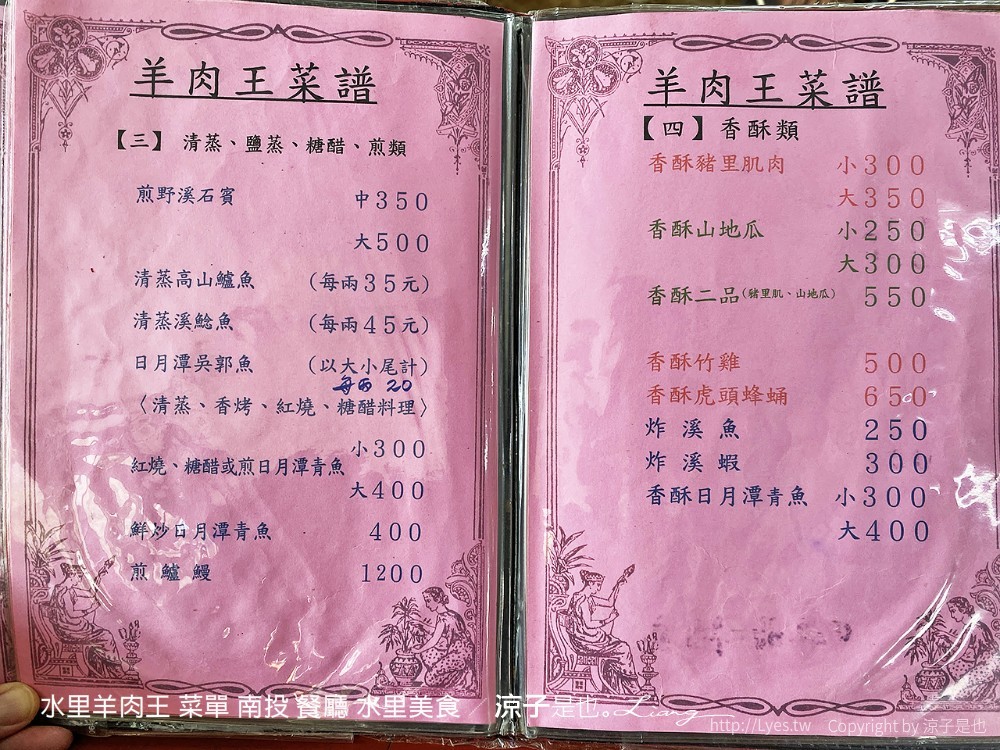 羊肉王菜譜
【三】 清蒸、鹽蒸、糖醋、煎類
煎野溪石賓 中350
大500
清蒸高山鱸魚 (每兩35元)
清蒸溪鯰魚 (每兩45元)
日月潭吳郭魚 (以大小尾計)
每兩 20
〈清蒸、香烤、紅燒、糖醋料理〉
小300
紅燒、糖醋或煎日月潭青魚
大400
鮮炒日月潭青魚 400
煎 鱸 鰻 1200
羊肉王菜譜
【四】香酥類
香酥豬里肌肉 小300
大350
香酥山地瓜 小250
大300
香酥二品(豬里肌、山地瓜) 550
香酥竹雞 500
香酥虎頭蜂蛹 650
炸 溪 魚 250
炸 溪 蝦 300
香酥日月潭青魚 小300
大400
水里羊肉王 菜單 南投 餐廳 水里美食 涼子是也。Liang
http://Lyes.tw Copyright by 涼子是也